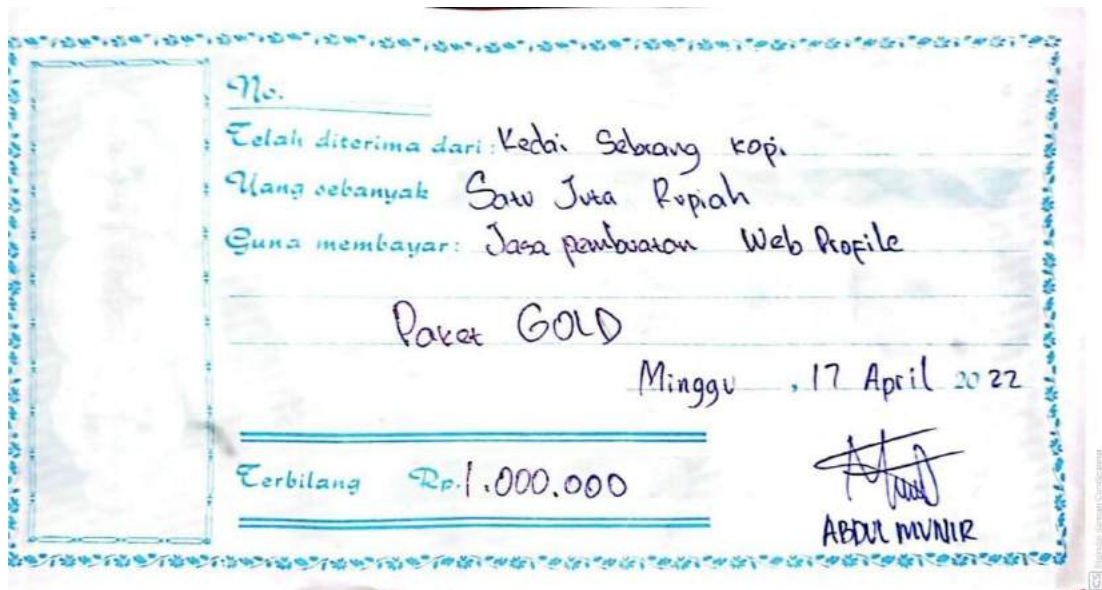 No.
Telah diterima dari : Kedai Sebrang kopi
Uang sebanyak Satu Juta Rupiah
Guna membayar : Jasa pembuatan Web Profile
Paket GOLD
Minggu , 17 April 2022
Terbilang Rp. 1.000.000
ABDUL MUNIR
CS Dipindai dengan CamScanner